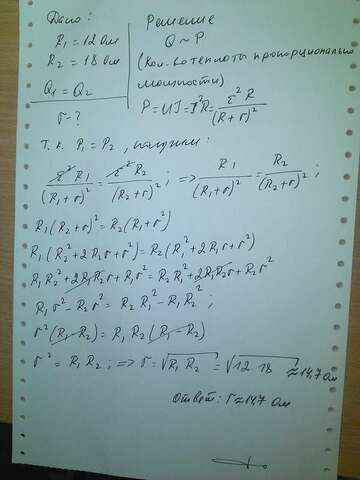 Дано:
R₁ = 12 Ом
R₂ = 18 Ом
Q₁ = Q₂
r - ?
Решение
Q ~ P
(кол. во теплоты пропорционально
мощности)
P = UI = I²R = ε²R/(R + r)²
Т.к. P₁ = P₂, получим:
ε²R₁/(R₁ + r)² = ε²R₂/(R₂ + r)²; => R₁/(R₁ + r)² = R₂/(R₂ + r)²;
R₁(R₂ + r)² = R₂(R₁ + r)²
R₁(R₂² + 2R₂r + r²) = R₂(R₁² + 2R₁r + r²)
R₁R₂² + 2R₁R₂r + R₁r² = R₂R₁² + 2R₁R₂r + R₂r²
R₁r² - R₂r² = R₂R₁² - R₁R₂²;
r²(R₁ - R₂) = R₁R₂(R₁ - R₂)
r² = R₁R₂; => r = √R₁R₂ = √12·18 ≈ 14,7 Ом
Ответ: r ≈ 14,7 Ом